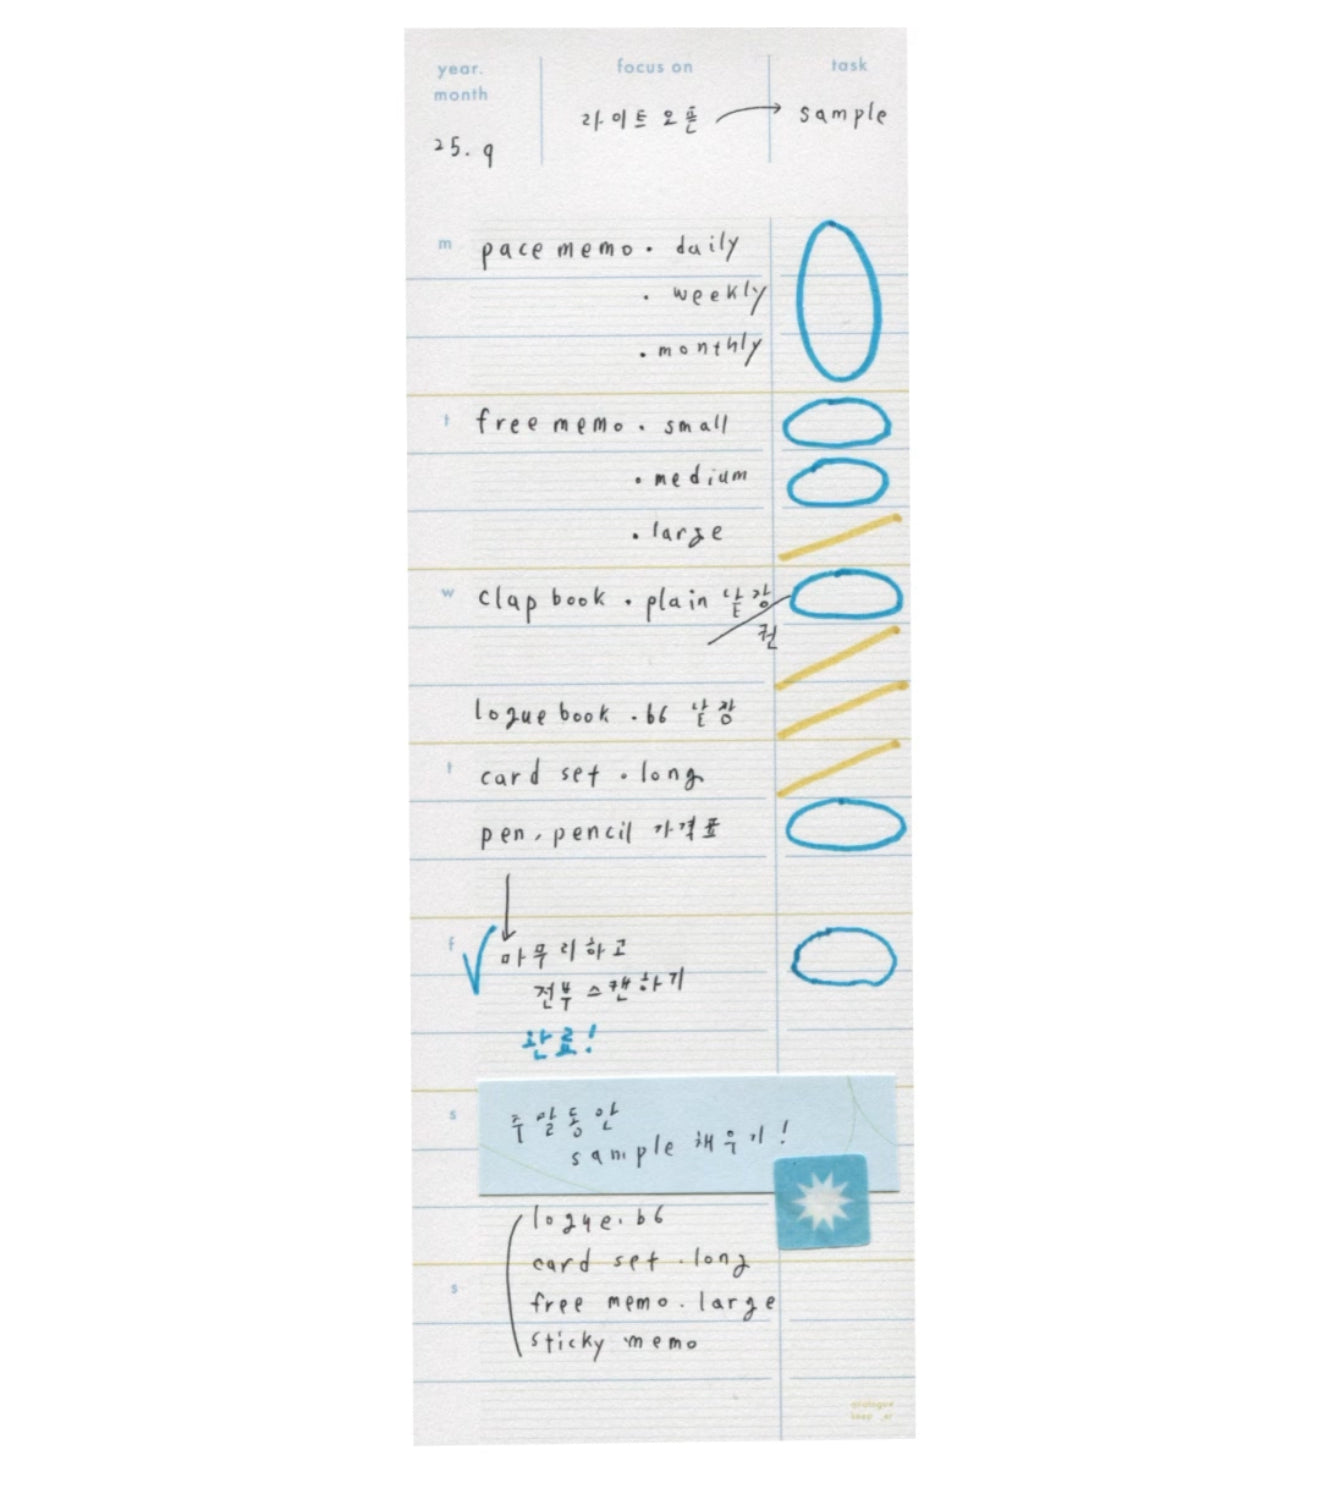 year.
month
focus on
task
25. 9
라이트 오픈
sample
m
pace memo. daily
. weekly
. monthly
t
free memo. small
. medium
. large
w
clap book . plain 낱장
권
logue book . b6 낱장
t
card set . long
pen, pencil 가격표
f
마무리하고
전부 스캔하기
완료!
s
주말동안
sample 채우기!
logue. b6
card set . long
s
free memo. large
sticky memo
analogue
keep_er